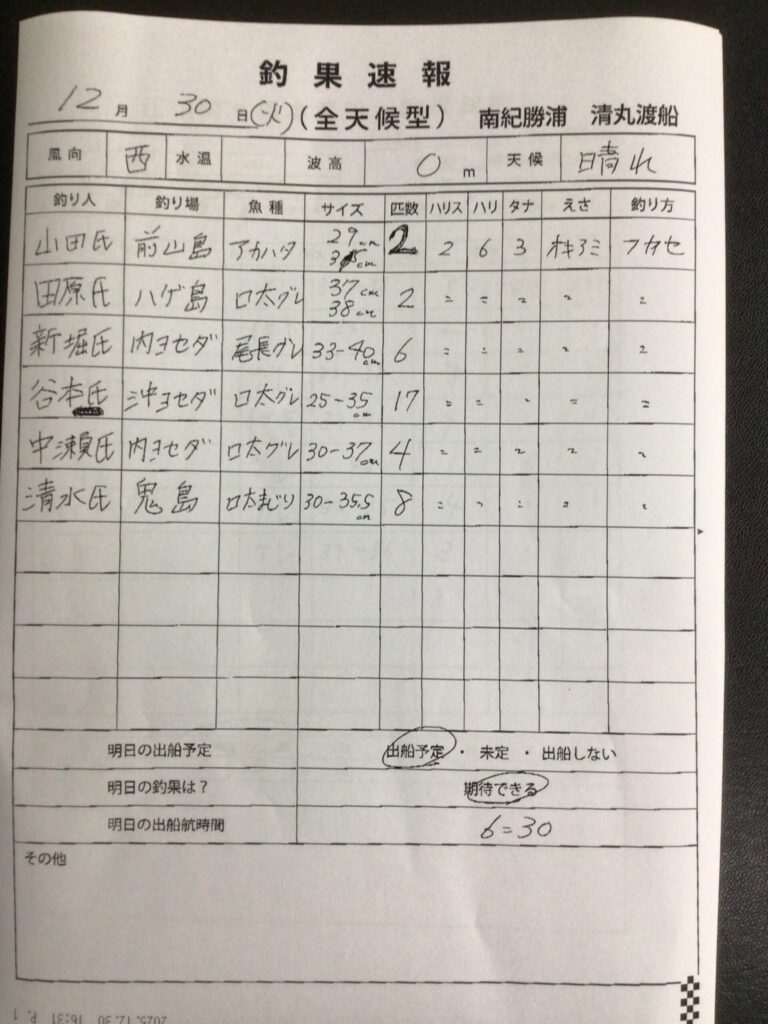 釣果速報
12月 30日(火)(全天候型) 南紀勝浦 清丸渡船
風向 西 水温 波高 0m 天候 晴れ
釣り人 釣り場 魚種 サイズ 匹数 ハリス ハリ タナ えさ 釣り方
山田氏 前山島 アカハタ 29cm 2 2 6 3 オキアミ フカセ
cm
田原氏 ハゲ島 口太グレ 37cm 38cm 2 〃 〃 〃 〃 〃
新堀氏 内ヨセダ 尾長グレ 33-40cm 6 〃 〃 〃 〃 〃
谷本氏 沖ヨセダ 口太グレ 25-35cm 17 〃 〃 〃 〃 〃
中瀬氏 内ヨセダ 口太グレ 30-37cm 4 〃 〃 〃 〃 〃
清水氏 鬼島 口太まじり 30-35.5cm 8 〃 〃 〃 〃 〃
明日の出船予定 出船予定 ・ 未定 ・ 出船しない
明日の釣果は? 期待できる
明日の出船航時間 6=30
その他
2025.12.30 16:31 P. 1